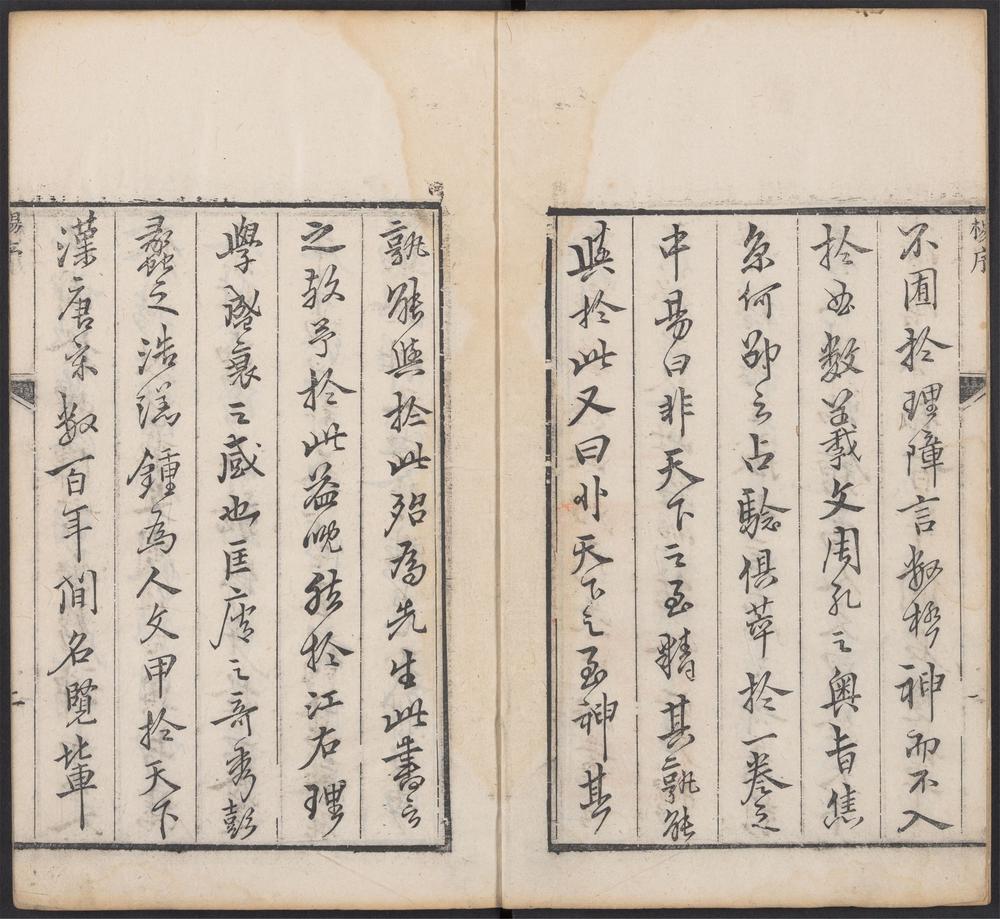 楊序
不囿於理障言數極神而不入
於曲數筭載文周孔之奧旨焦
京何邵之占驗俱萃於一卷之
中易曰非天下之至精其孰能
與於此又曰非天下之至神其
孰能與於此殆為先生此書言
之歟予於此益晩然於江右理
學盛衰之感也匡廬之奇秀彭
蠡之浩瀁鍾為人文甲於天下
漢唐宋數百年間名賢輩
楊序
二